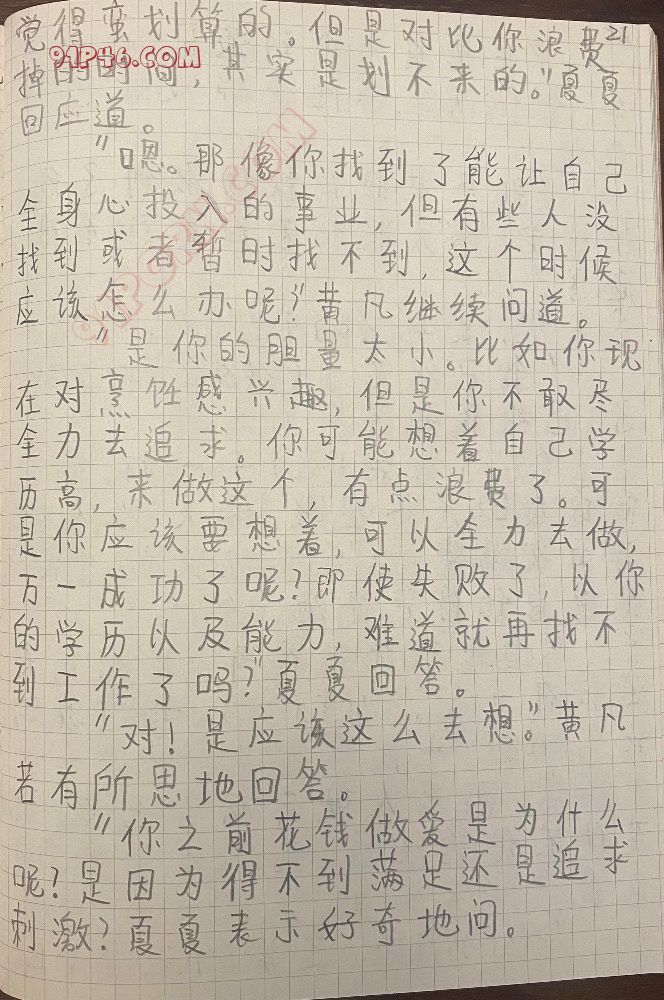 觉得蛮划算的。但是对比你浪费21
91P46.COM
掉的时间，其实是划不来的。”夏夏
回应道。
“嗯。那像你找到了能让自己
全身心投入的事业，但有些人没
找到或者暂时找不到，这个时候
应该怎么办呢？”黄凡继续问道。
“是你的胆量太小。比如你现
在对烹饪感兴趣，但是你不敢尽
全力去追求。你可能想着自己学
历高，来做这个，有点浪费了。可
是你应该要想着，可以全力去做，
万一成功了呢？即使失败了，以你
的学历以及能力，难道就再找不
到工作了吗？”夏夏回答。
“对！是应该这么去想。”黄凡
若有所思地回答。
“你之前花钱做爱是为什么
呢？是因为得不到满足还是追求
刺激？夏夏表示好奇地问。